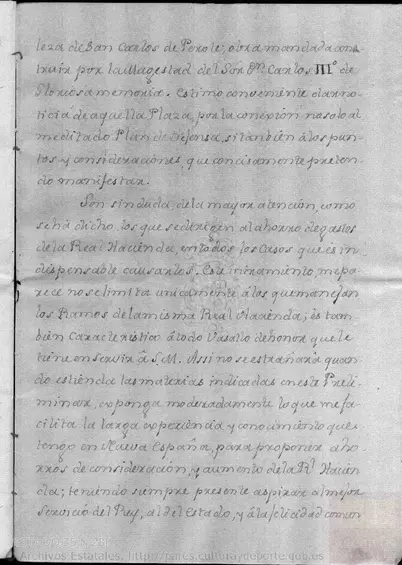 leza de San Carlos de Perote, obra mandada cons
truir por la Magestad del Sor. Dn. Carlos IIIo. de
Gloriosa memoria. Estimo conveniente dar no
ticia de aquella Plaza, por la conexion no solo al
meditado Plan de Defensa, si tanbien á los pun
tos y consideraciones, que concisamente preten
do manifestar.
Son sin duda, de la mayor atencion, como
se há dicho, los que se dirigen al ahorro de gastos
de la Real Hacienda, en todos los Casos que és in
dispensable causarlos. Este miramiento, me pa
rece no se limita unicamente á los que manejan
los Ramos de la misma Real Hacienda; és tam
bien Caracteristico á todo Vasallo de honor que le
tiene en Servir á S.M. Assi no se estrañará quan
do estienda las materias indicadas en este Preli
minar, exponga moderadamente lo que me fa
cilita la larga experiencia y conocimiento que
tengo en Nueva España, para proponer aho
rros de consideracion, y aumento de la Rl. Hacien
da; teniendo siempre presente aspirar al mejor
Servicio del Rey, al del Estado, y á la felicidad comun
Archivos Estatales, http://pares.culturaydeporte.gob.es